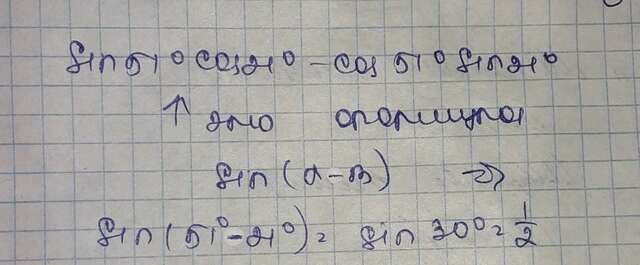 sin 51° cos 21° - cos 51° sin 21°
↑ это формула
sin (α - β) ⇒
sin (51° - 21°) = sin 30° = 1/2